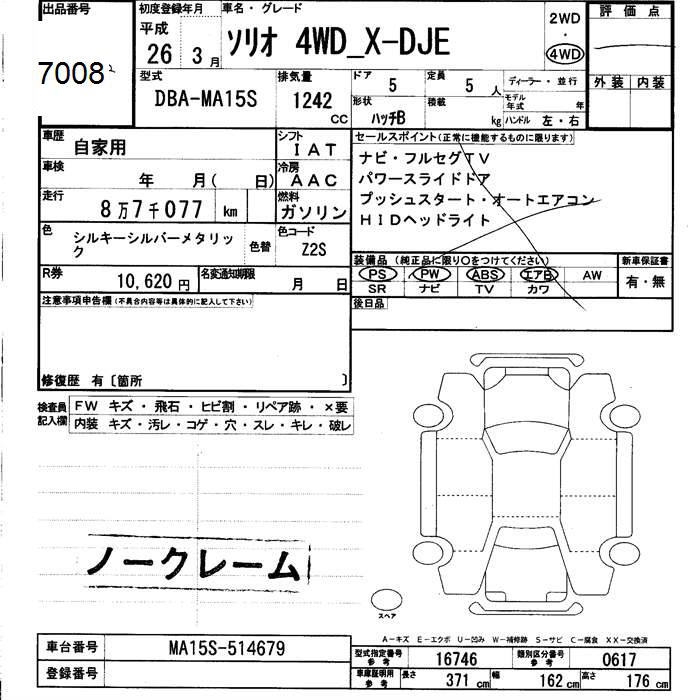 出品番号
7008
初度登録年月
平成
26 3月
車名・グレード
ソリオ 4WD_X-DJE
2WD
・
4WD
評価点
外装 内装
型式
DBA-MA15S
排気量
1242 CC
ドア 5
定員 5人
ディーラー・並行
形状 ハッチB
積載 kg
モデル年式 年
ハンドル 左・右
車歴
自家用
シフト
IAT
車検
年 月( 日)
冷房
AAC
走行
8万7千077 km
燃料
ガソリン
色
シルキーシルバーメタリック
色替
色コード
Z2S
R券
10,620円
名変通知期限
月 日
セールスポイント(正常に機能するものに限ります)
ナビ・フルセグTV
パワースライドドア
プッシュスタート・オートエアコン
HIDヘッドライト
装備品(純正品に限り○をつけてください)
PS PW ABS エアB AW
SR ナビ TV カワ
新車保証書
有・無
後日品
注意事項申告欄(不具合内容等は具体的に記入して下さい)
修復歴 有〔箇所 〕
検査員記入欄
FW キズ・飛石・ヒビ割・リペア跡・×要
内装 キズ・汚レ・コゲ・穴・スレ・キレ・破レ
ノークレーム
スペア
A-キズ E-エクボ U-凹み W-補修跡 S-サビ C-腐食 XX-交換済
車台番号
MA15S-514679
登録番号
型式指定番号
参考
16746
類別区分番号
参考
0617
車庫証明用
参考
長さ 371 cm
幅 162 cm
高さ 176 cm